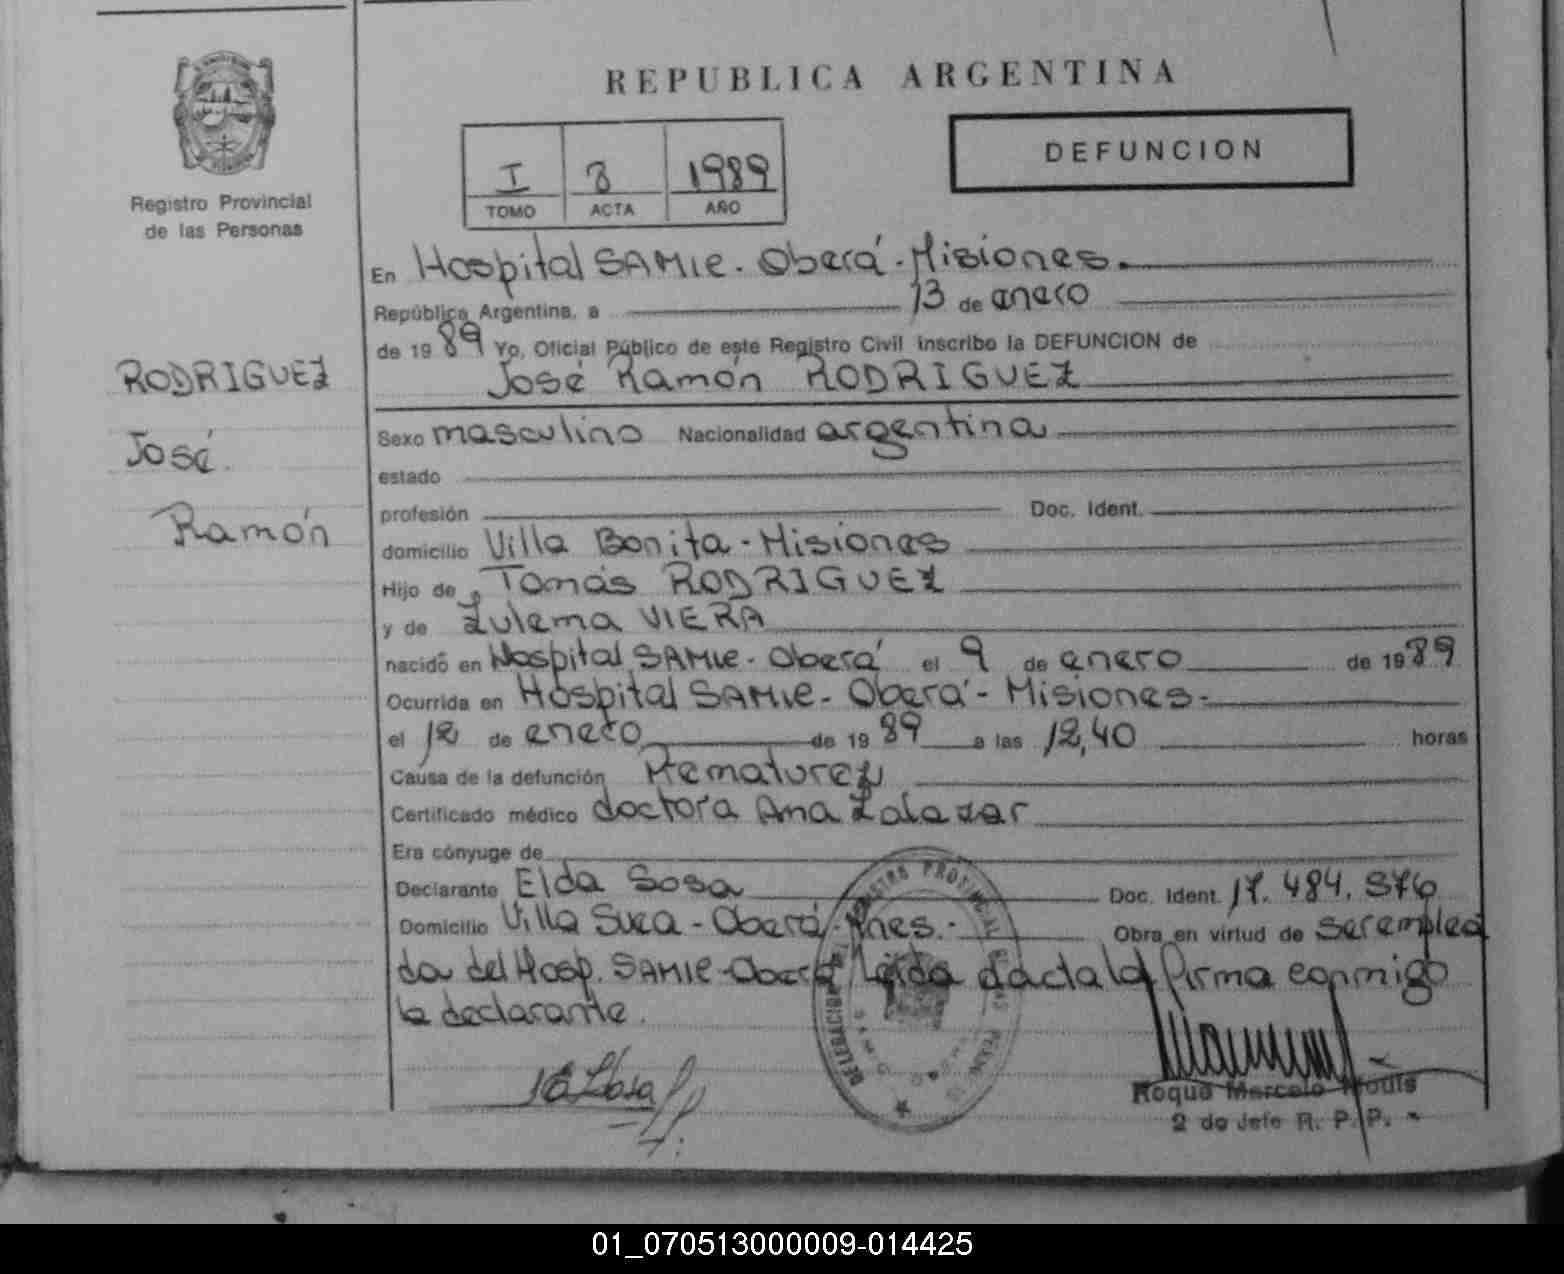 REPUBLICA ARGENTINA
DEFUNCION
I 8 1989
TOMO ACTA AÑO
Registro Provincial
de las Personas
RODRIGUEZ
José
Ramón
En Hospital SAMIC. Oberá - Misiones.
República Argentina, a 13 de enero
de 1989 Yo, Oficial Público de este Registro Civil inscribo la DEFUNCION de
José Ramón RODRIGUEZ
Sexo masculino Nacionalidad argentina
estado
profesión Doc. Ident.
domicilio Villa Bonita - Misiones
Hijo de Tomás RODRIGUEZ
y de Zulema VIERA
nacido en Hospital SAMIC - Oberá el 9 de enero de 1989
Ocurrida en Hospital SAMIC - Oberá - Misiones -
el 12 de enero de 1989 a las 12,40 horas
Causa de la defunción
Certificado médico doctora Ana Zalazar
Era cónyuge de
Declarante Elda Sosa Doc. Ident. 17.484.376
Domicilio Villa Suca - Oberá - Mnes. - Obra en virtud de ser emplea
da del Hosp. SAMIC - Oberá Leída el acta la firma conmigo
la declarante.
REGISTRO PROVINCIAL DE LAS PERSONAS
DELEGACION
Roque Marcelo
2 do Jefe R. P. P.
01_070513000009-014425